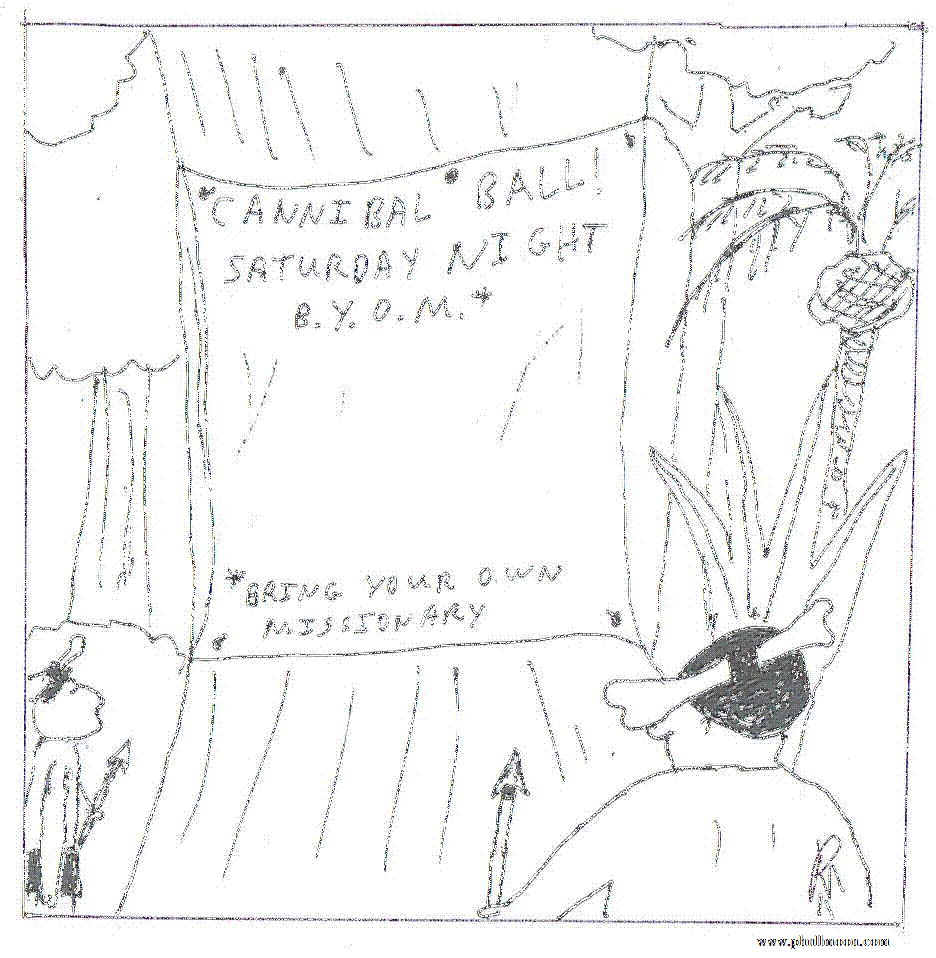 CANNIBAL BALL!
SATURDAY NIGHT
B.Y.O.M.*
*BRING YOUR OWN
MISSIONARY